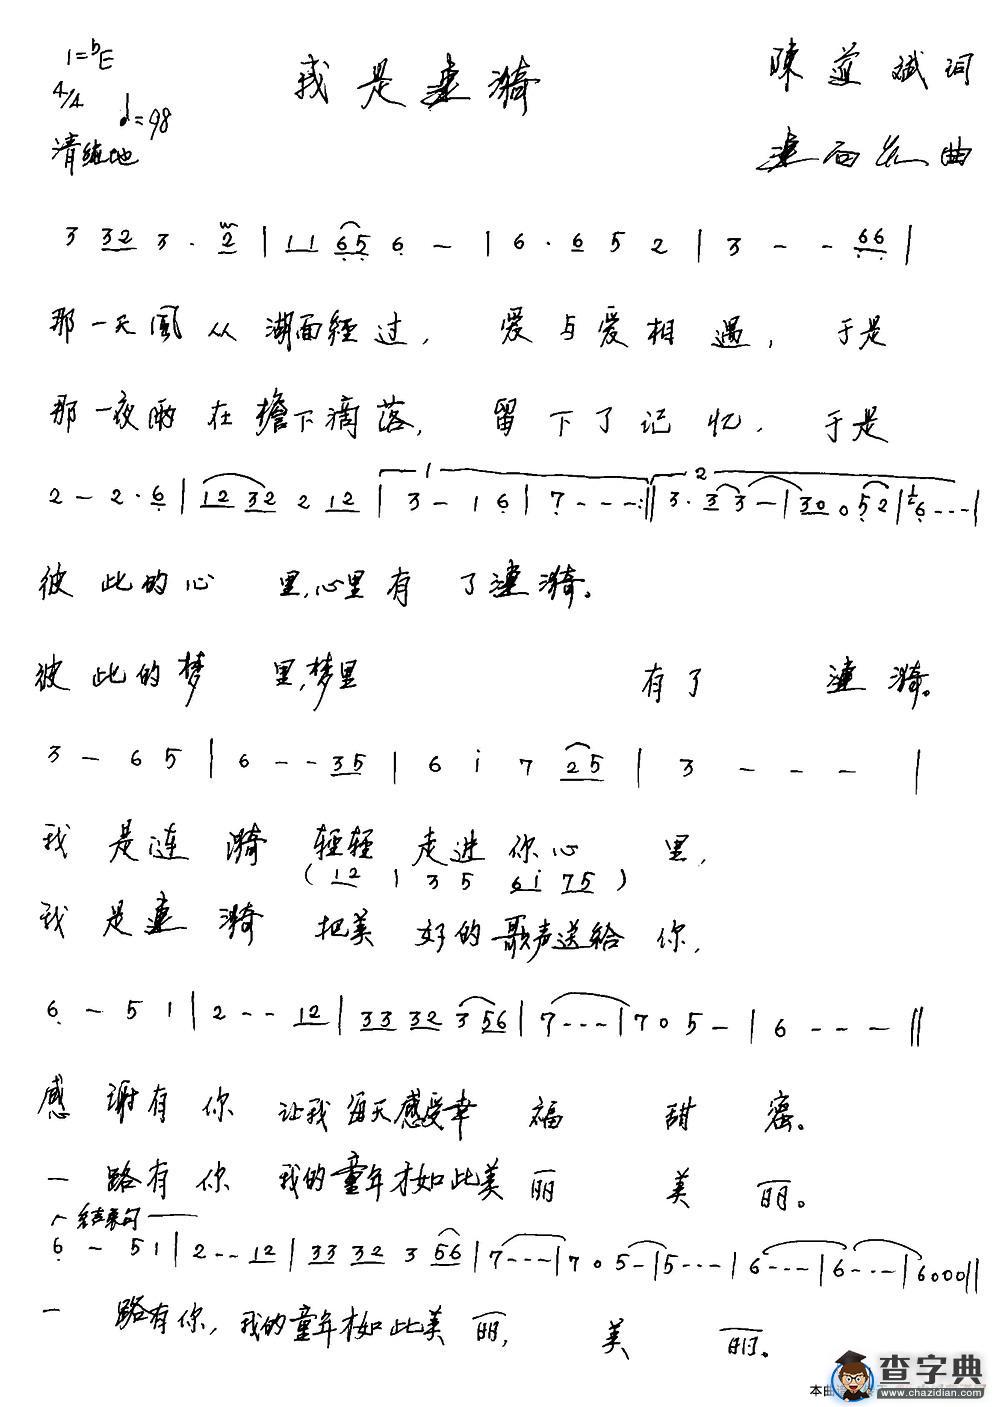 1=ᵇE
我是漣漪
陳道斌词
4/4
♩=98
清纯地
曲
3 32 3 · 2 | 11 65 6 - | 6 · 6 5 2 | 3 - - 66 |
那一天風从湖面經过， 爱与爱相遇， 于是
那一夜雨在檐下滴落， 留下了记忆， 于是
2 - 2 · 6 | 12 32 2 12 | 3 - 1 6 | 7 - - - :|| 3 · 3 3 - | 30 0 52 | 6 - - - |
彼此的心里，心里有了漣漪。
彼此的梦里，梦里有了漣漪。
3 - 6 5 | 6 - - 35 | 6 i 7 25 | 3 - - - |
我是涟漪 轻轻走进你心里，
( 12 1 3 5 6i 75 )
我是漣漪 把美好的歌声送給你，
6 - 5 1 | 2 - - 12 | 33 32 3 56 | 7 - - - | 7 0 5 - | 6 - - - ||
感谢有你 让我每天感受幸福 甜蜜。
一路有你 我的童年才如此美丽 美丽。
结束句
6 - 5 1 | 2 - - 12 | 33 32 3 56 | 7 - - - | 7 0 5 - | 5 - - - | 6 - - - | 6 - - - | 6000 ||
一路有你，我的童年才如此美丽，美丽。
查字典
www.chazidian.com
本曲